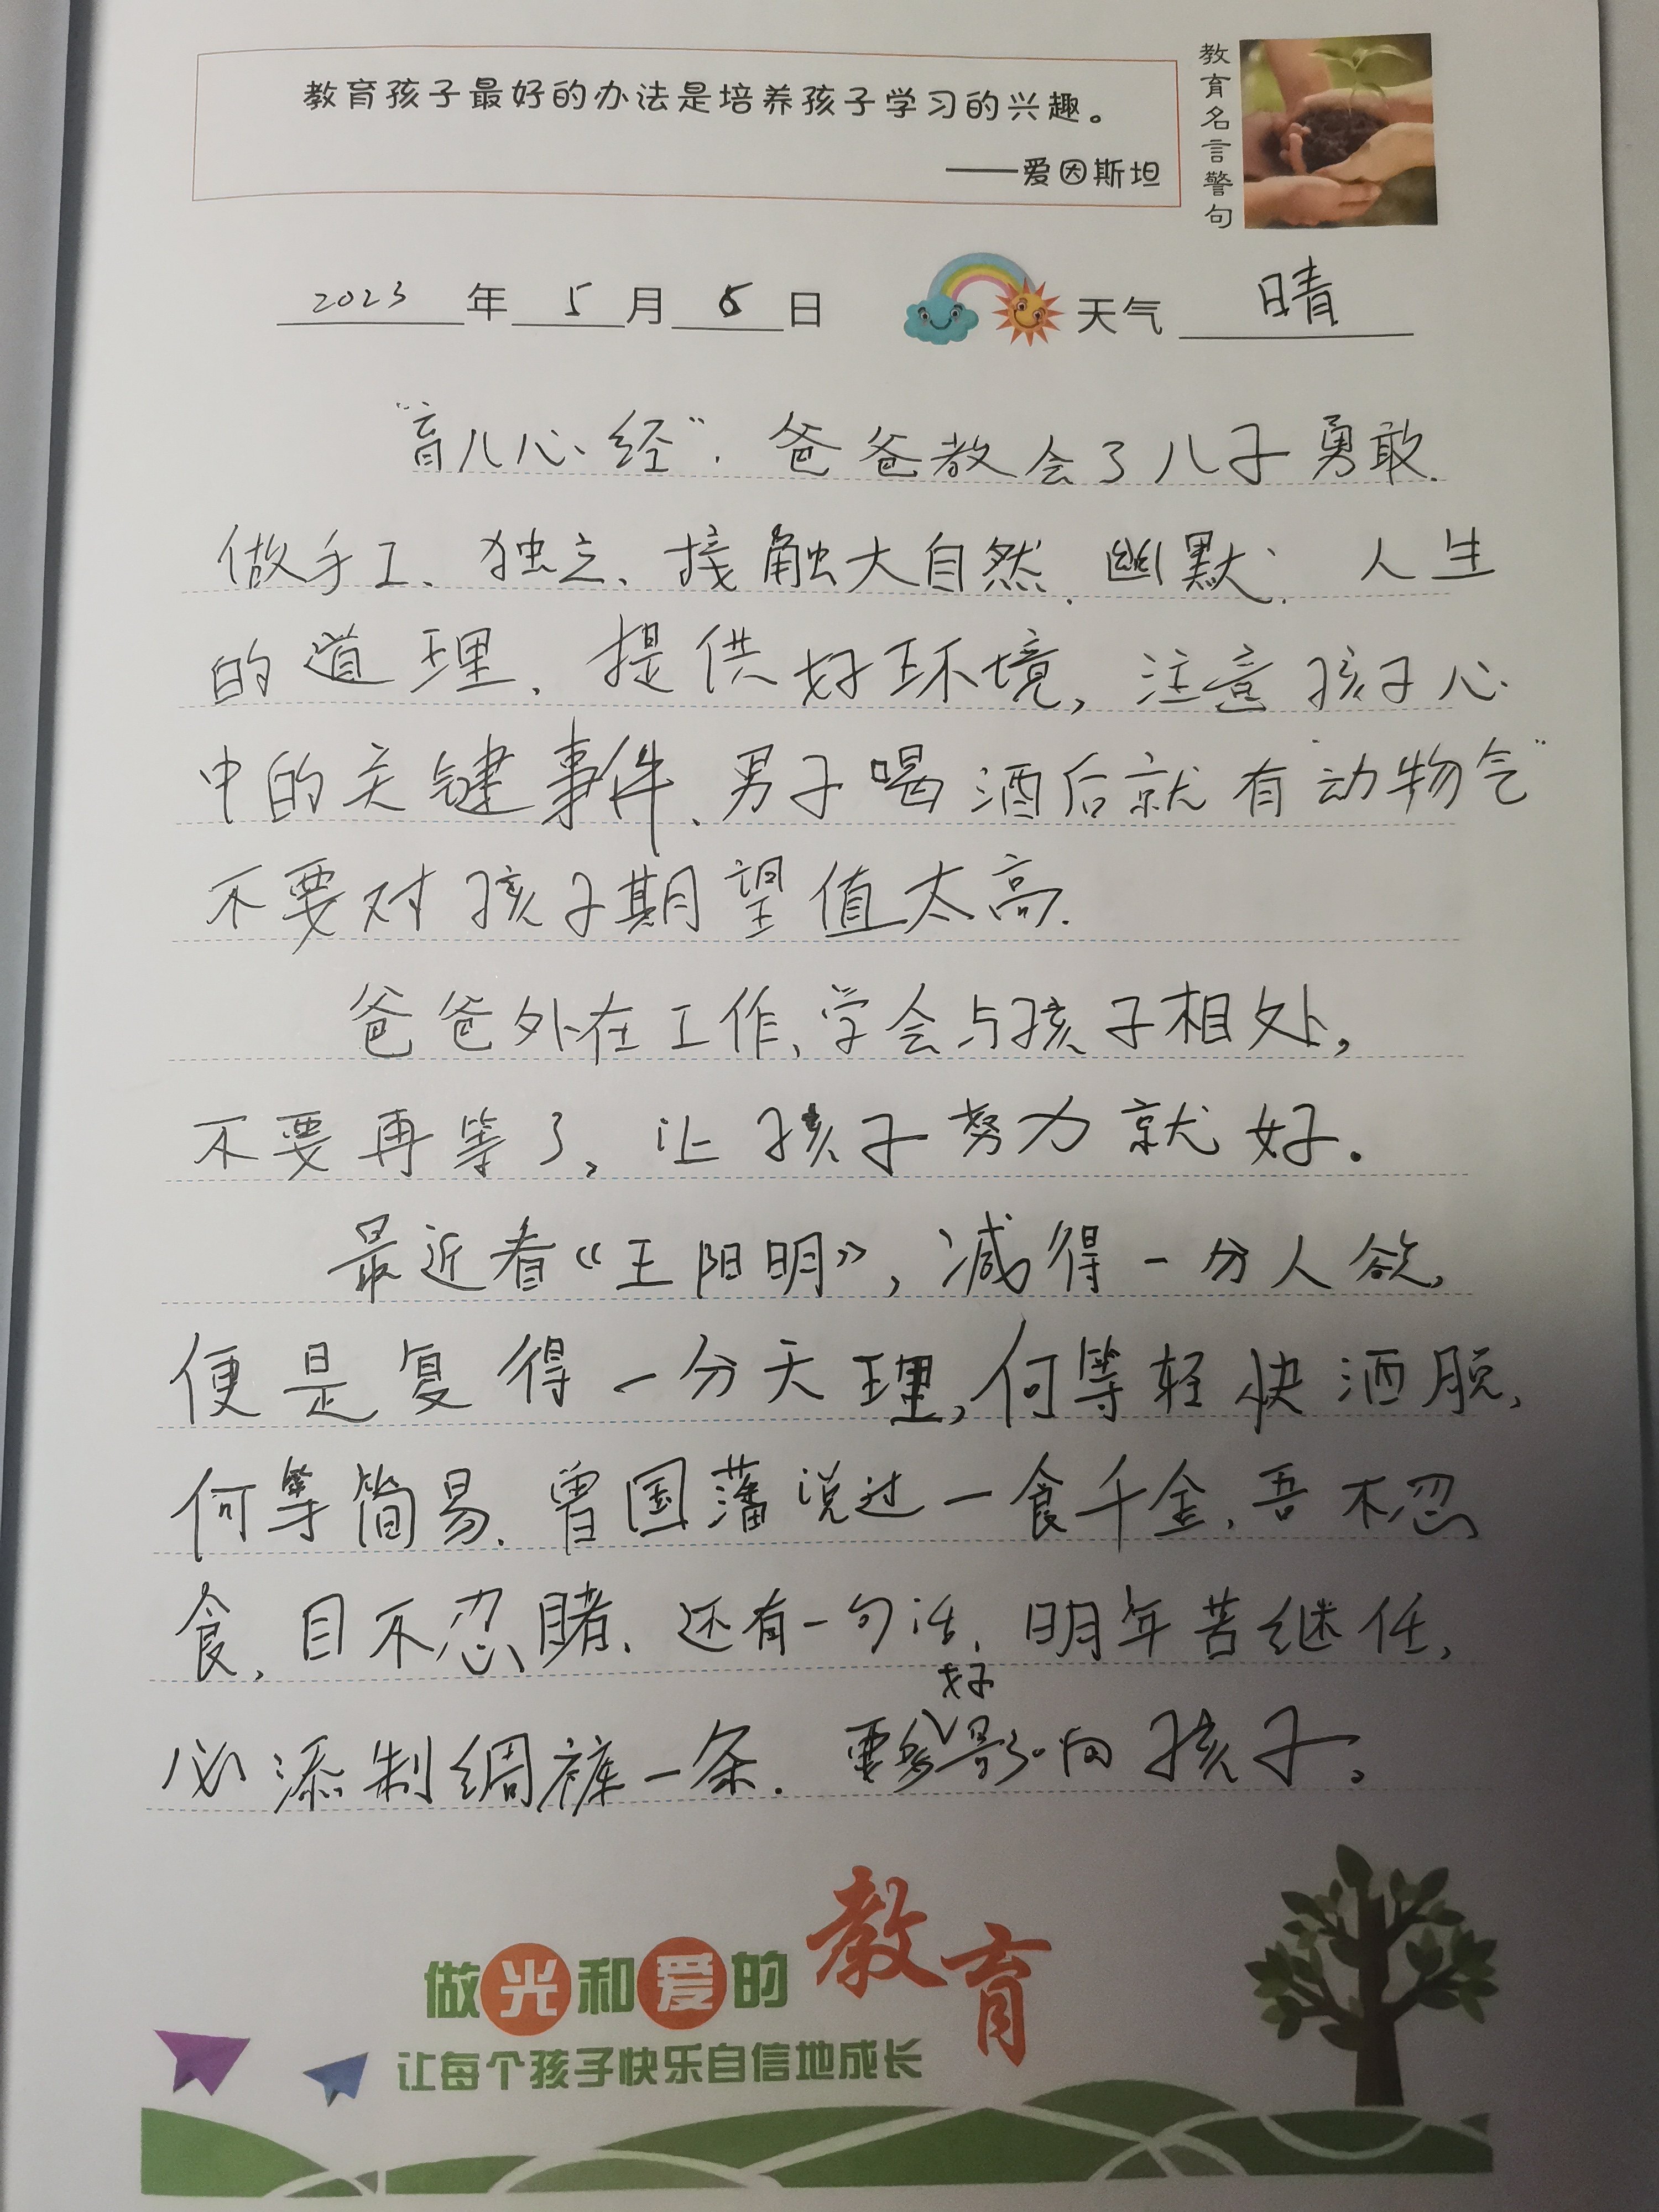 教育孩子最好的办法是培养孩子学习的兴趣。
——爱因斯坦
教育名言警句
2023年5月6日 天气 晴
“育儿心经”.爸爸教会了儿子勇敢.
做手工、独立、接触大自然、幽默、人生
的道理、提供好环境,注意孩子心
中的关键事件、男子喝酒后就有“动物气”
不要对孩子期望值太高.
爸爸外在工作,学会与孩子相处,
不要再等了,让孩子努力就好.
最近看《王阳明》,减得一分人欲,
便是复得一分天理,何等轻快洒脱,
何等简易.曾国藩说过一食千金,吾不忍
食,目不忍睹.还有一句话,明年苦继任,
必添制绸裤一条.要好影响孩子。
做光和爱的教育
让每个孩子快乐自信地成长